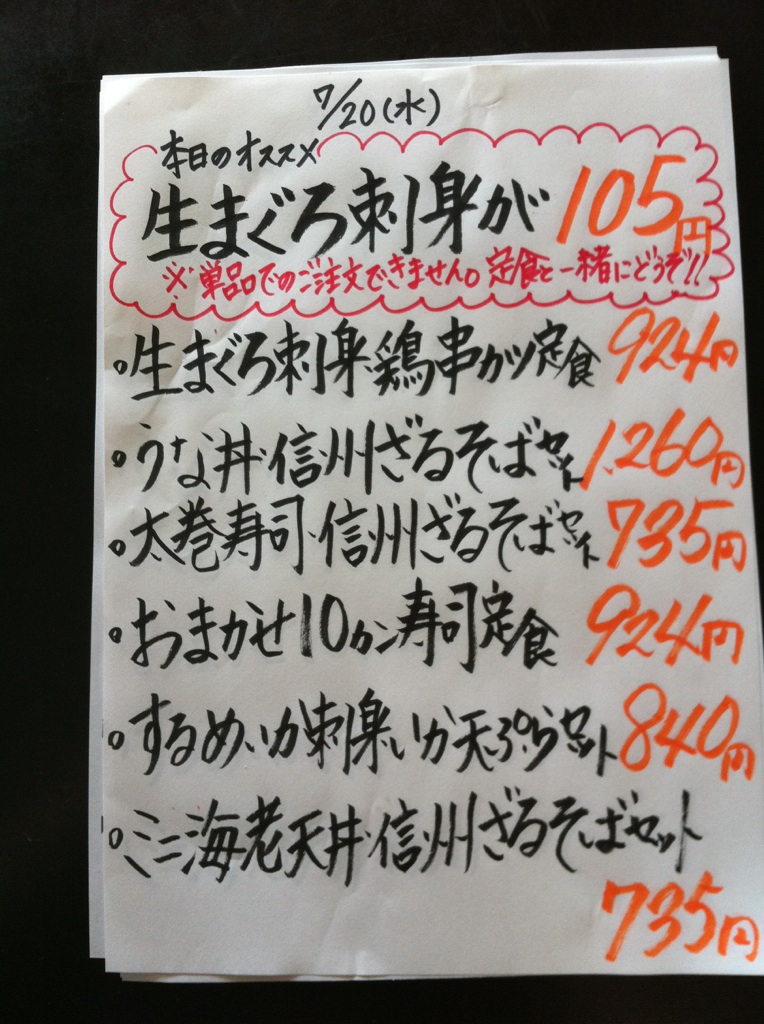 7/20(水)
本日のオススメ
生まぐろ刺身が105円
※単品でのご注文できません。定食と一緒にどうぞ!!
○生まぐろ刺身・鶏串カツ定食 924円
○うな丼・信州ざるそばセット 1,260円
○太巻寿司・信州ざるそばセット 735円
○おまかせ10カン寿司定食 924円
○するめいか刺身・いか天ぷらセット 840円
○ミニ海老天丼・信州ざるそばセット
735円